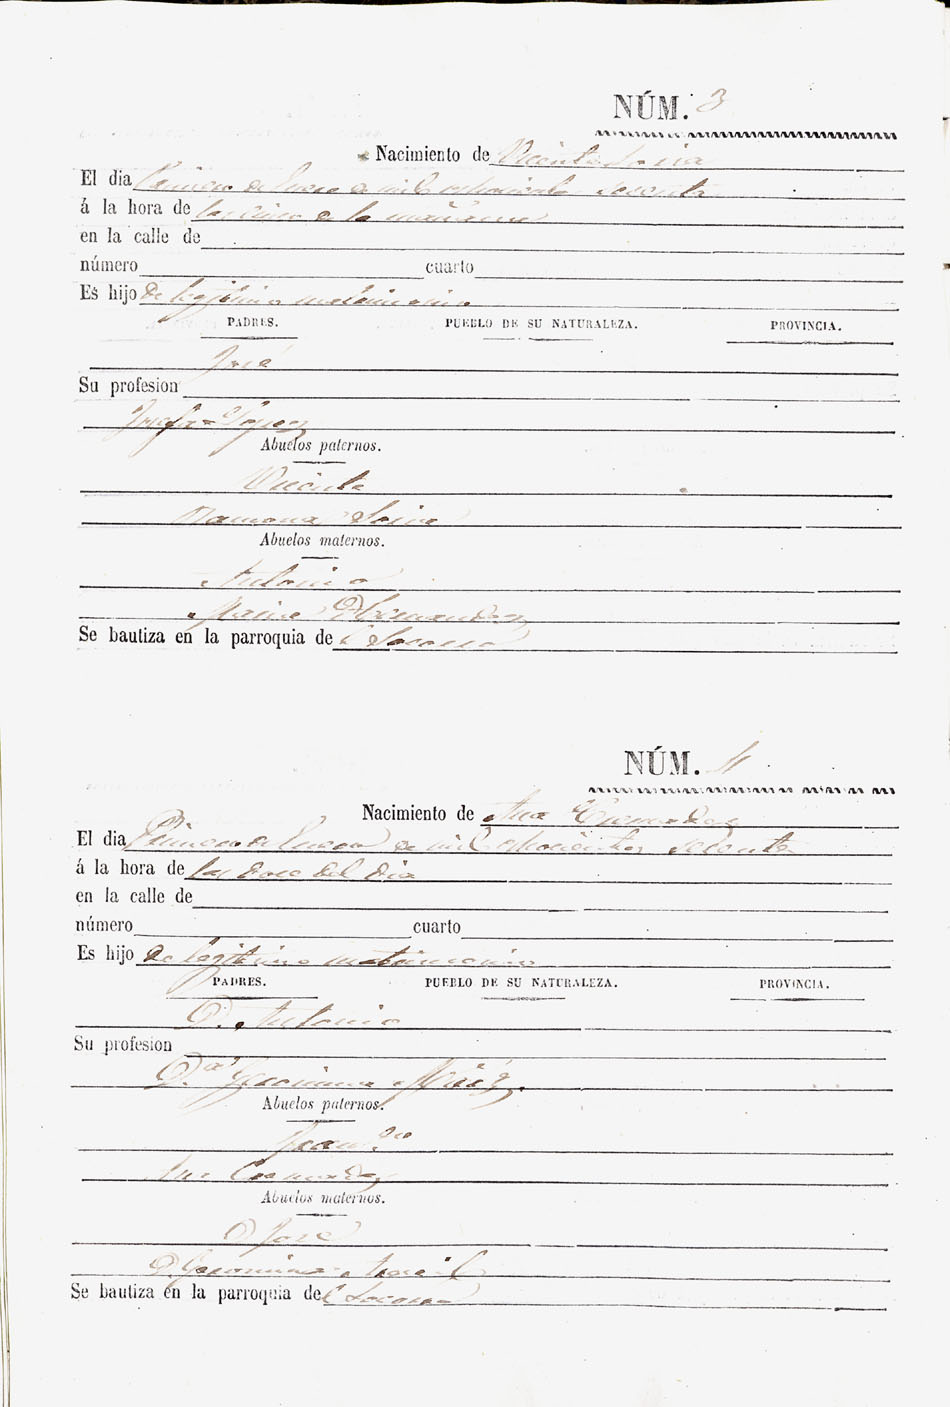 NÚM. 3
Nacimiento de Vicente Soria
El dia Primero de Enero de mil ochocientos sesenta
á la hora de las cinco de la mañana
en la calle de
número cuarto
Es hijo de legitimo matrimonio
PADRES. PUEBLO DE SU NATURALEZA. PROVINCIA.
José
Su profesion
Josefa Lopez
Abuelos paternos.
Vicente
Ramona Soria
Abuelos maternos.
Antonio
Maria Hernandez
Se bautiza en la parroquia de Socorro
NÚM. 4
Nacimiento de Ana
El dia Primero de Enero de mil ochocientos sesenta
á la hora de las doce del dia
en la calle de
número cuarto
Es hijo de legitimo matrimonio
PADRES. PUEBLO DE SU NATURALEZA. PROVINCIA.
D. Antonio
Su profesion
D.ª Geronima
Abuelos paternos.
Fran.co
Ana
Abuelos maternos.
D José
D. Geronima
Se bautiza en la parroquia de Socorro